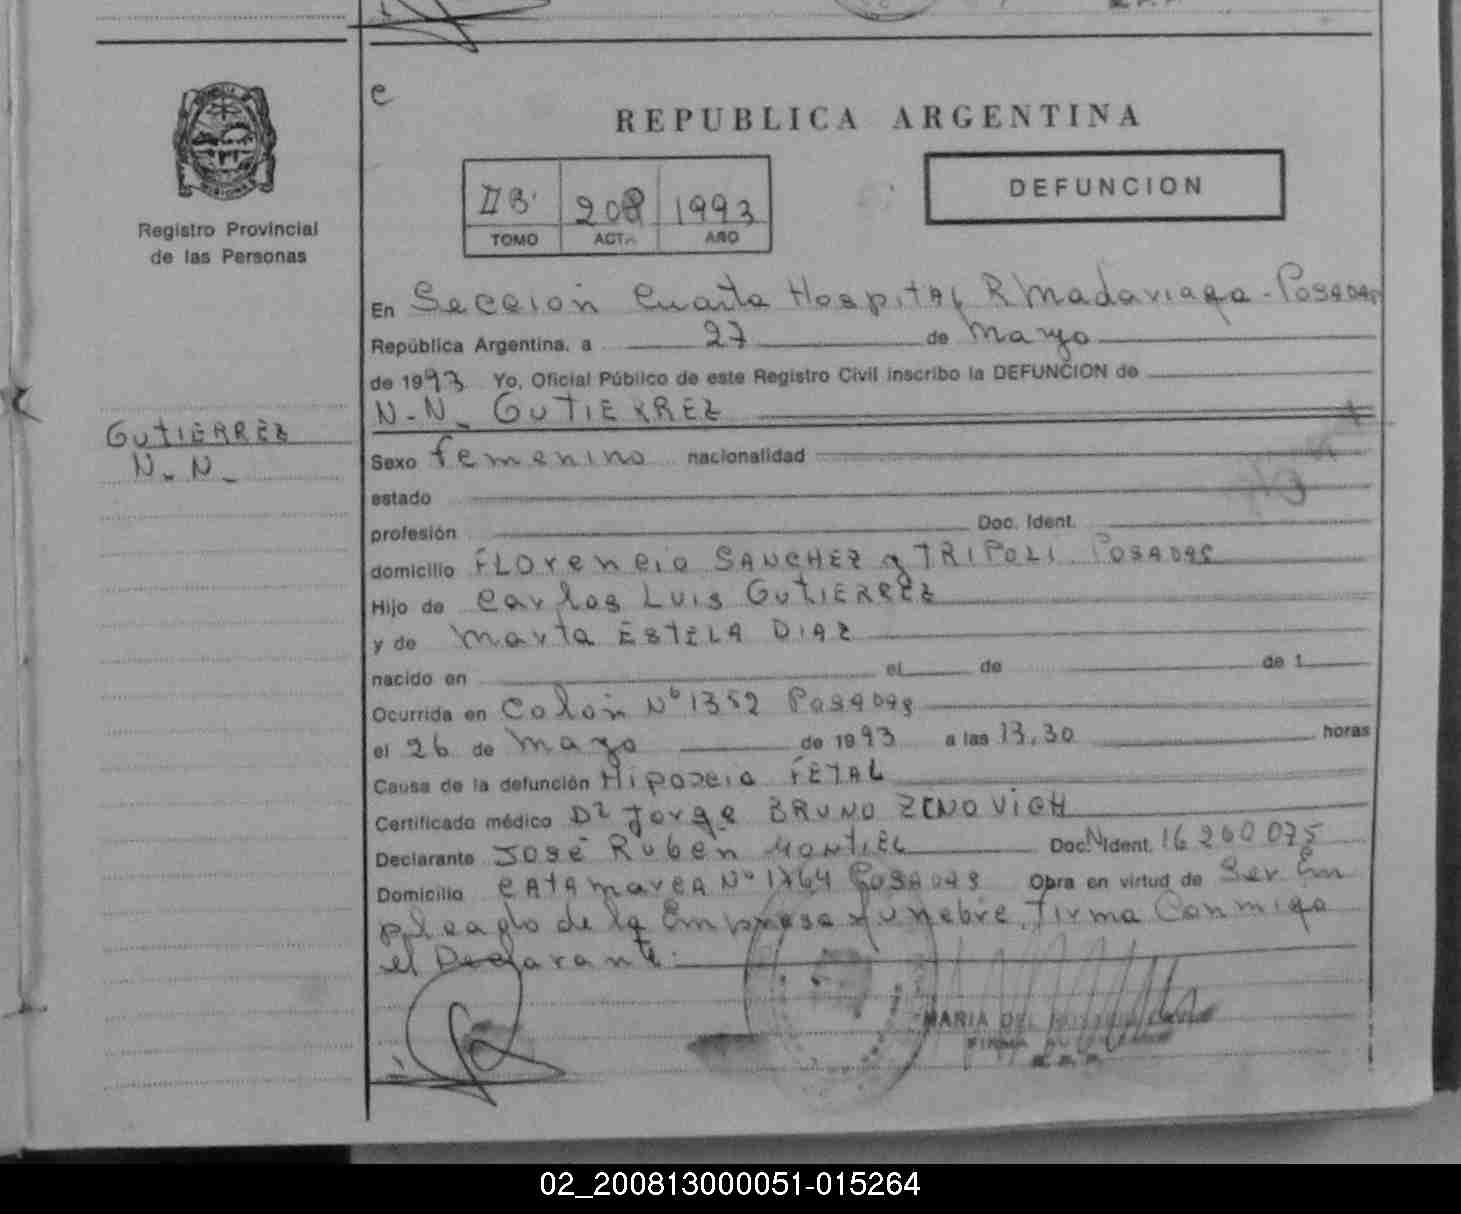 e
REPUBLICA ARGENTINA
DEFUNCION
II B. 208 1993
TOMO ACTA AÑO
Registro Provincial
de las Personas
En Sección Cuarta Hospital R Madariaga - Posadas
República Argentina, a 27 de Mayo
de 1993 Yo, Oficial Público de este Registro Civil inscribo la DEFUNCION de
N-N_ GUTIERREZ
GUTIERREZ
N_ N_
Sexo femenino nacionalidad
estado
profesión Doc. Ident.
domicilio FLorencio SANCHEZ y TRIPOLI POSADAS
Hijo de Carlos LUIS GUTIERREZ
y de Marta ESTELA DIAZ
nacido en el de de 1
Ocurrida en Colón Nº 1352 Posadas
el 26 de Mayo de 1993 a las 13,30 horas
Causa de la defunción Hipoxia FETAL
Certificado médico Dr Jorge BRUNO ZENOVICH
Declarante José Ruben MONTIEL Doc. Ident. 16 260 075
Domicilio CATAmarca Nº 1764 Posadas Obra en virtud de Ser Em
pleado de la Empresa funebre. Firma Conmigo
el Declarante.
MARIA DEL
FIRMA
02_200813000051-015264